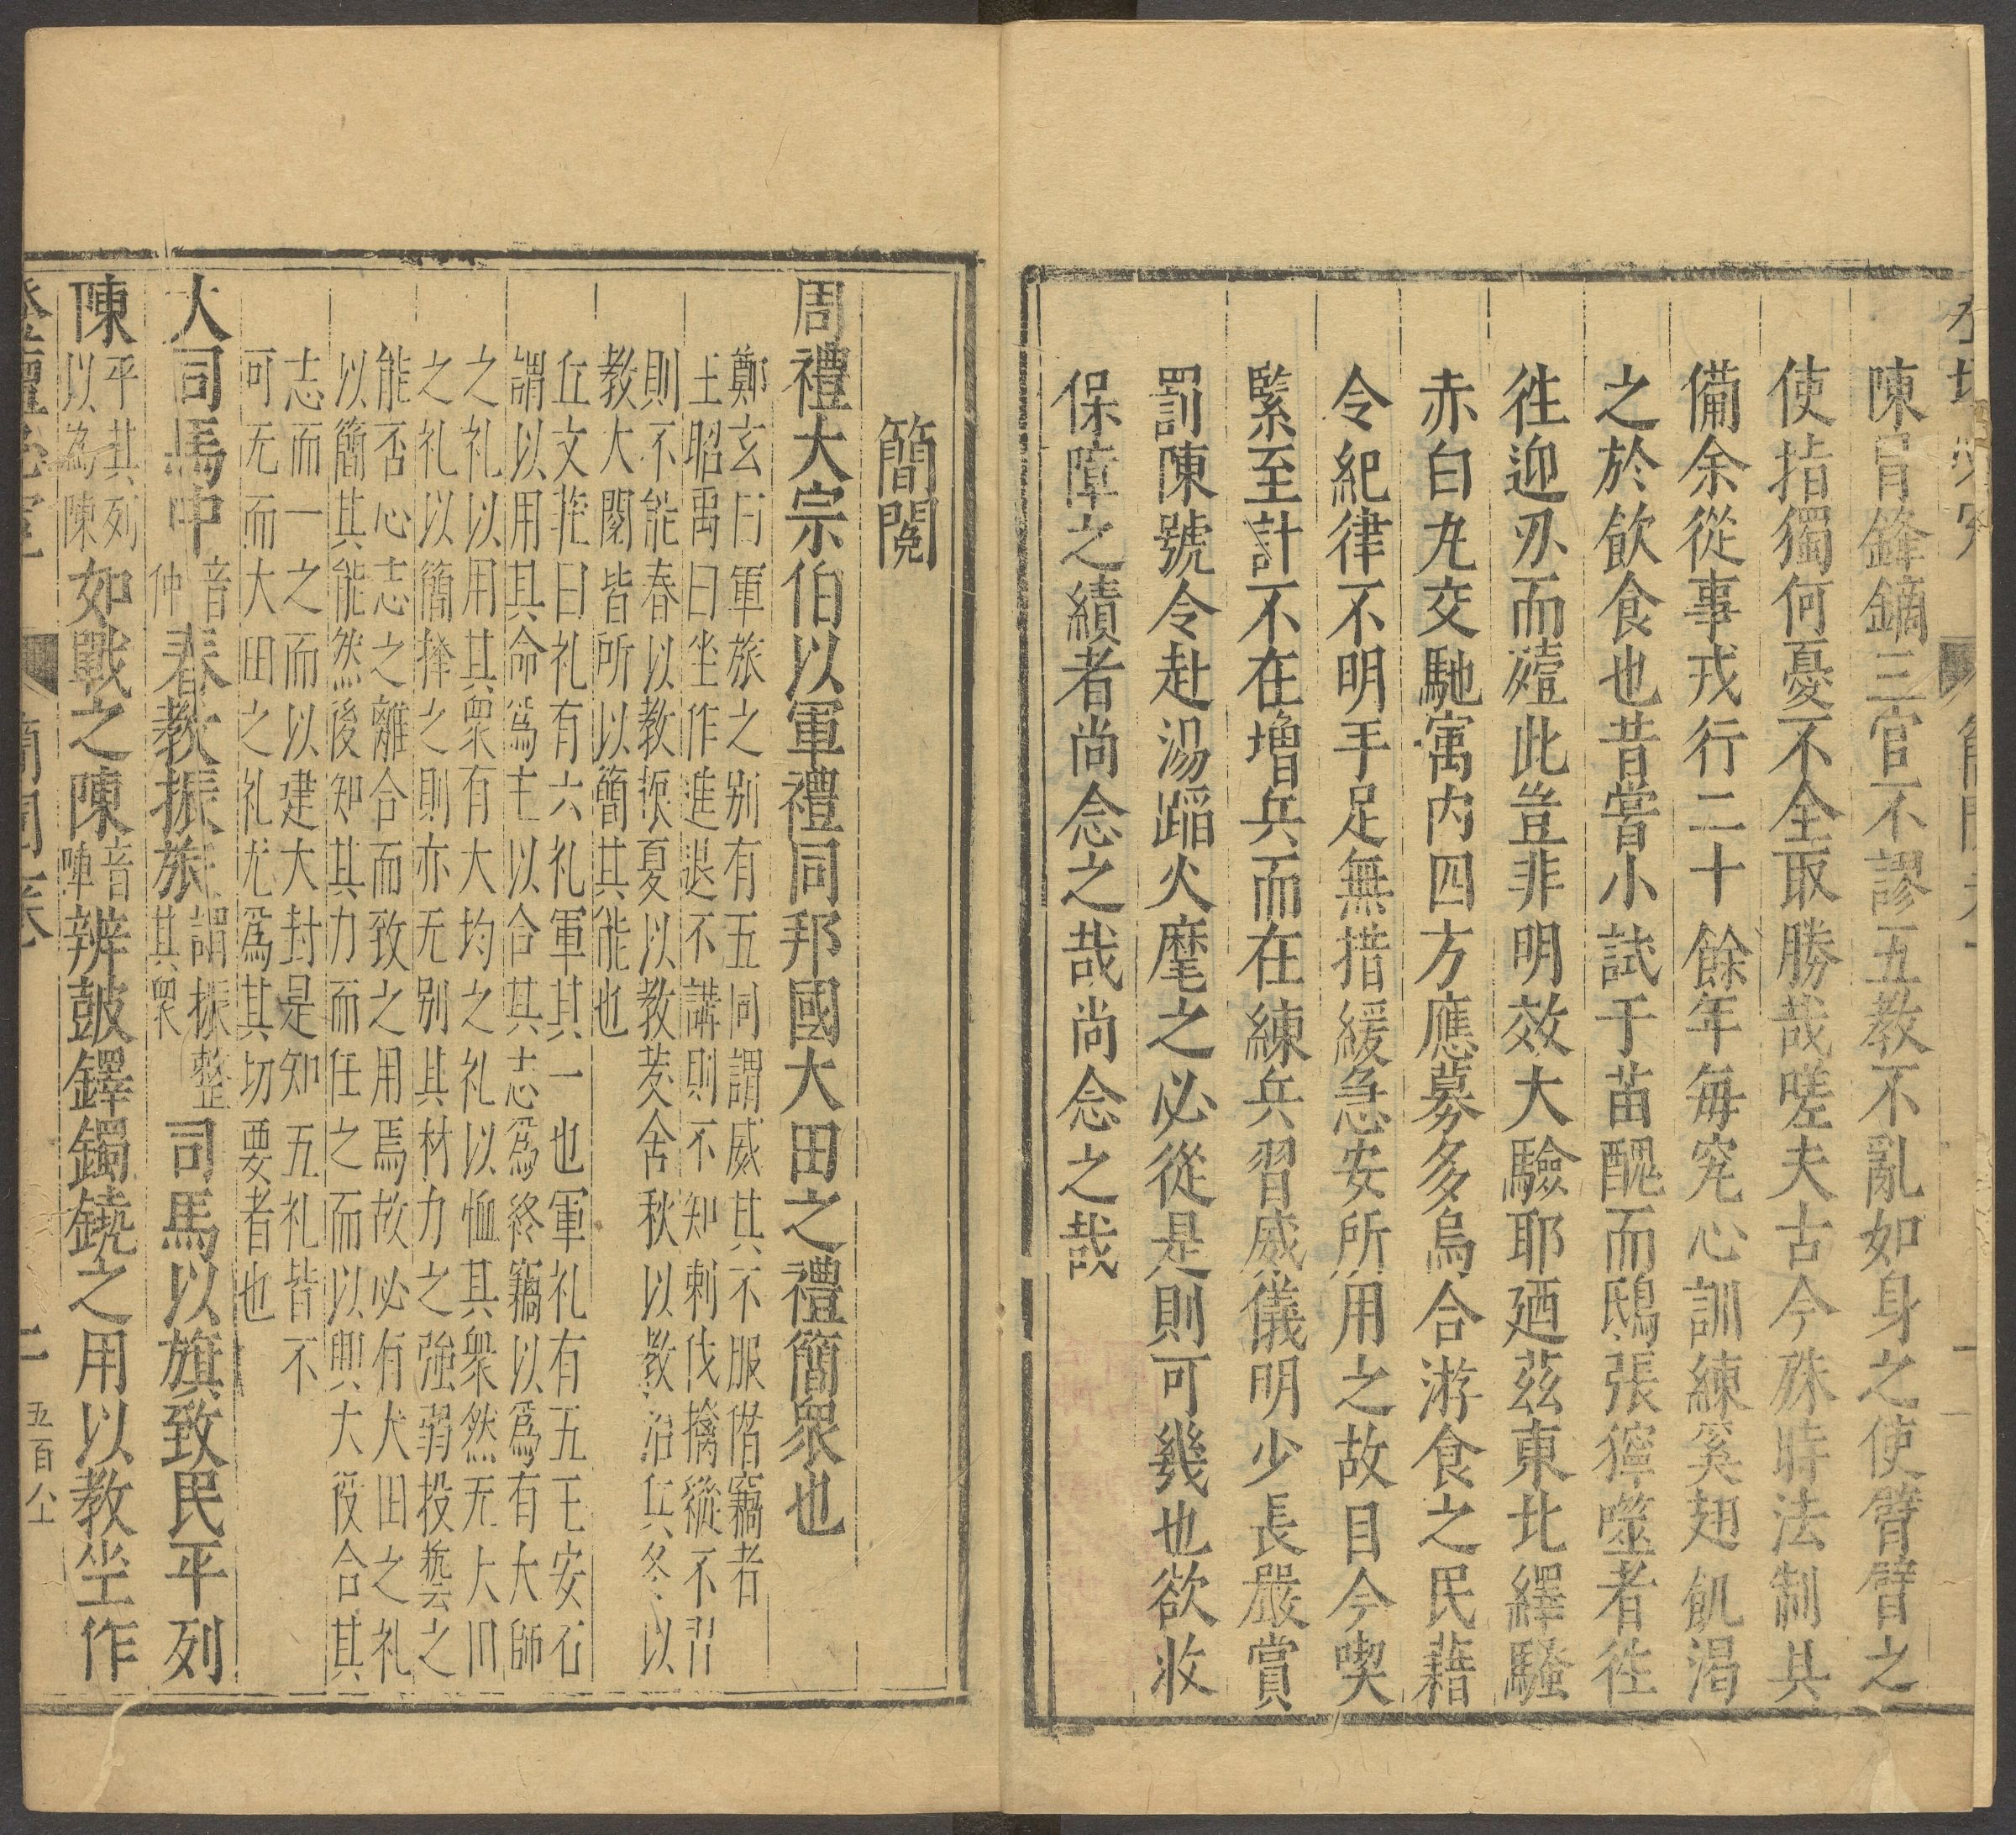 陳肙鋒鏑三官不謬五教不亂如身之使臂臂之
使指獨何憂不全取勝哉嗟夫古今殊時法制具
備余從事戎行二十餘年每究心訓練奚翅飢渴
之於飲食也昔嘗小試于苗醜而鴟張獰噬者徃
徃迎刃而殪此豈非明效大驗耶廼茲東北繹騷
赤白丸交馳寓内四方應募多烏合游食之民藉
令紀律不明手足無措緩急安所用之故目今喫
緊至計不在增兵而在練兵習威儀明少長嚴賞
罰陳號令赴湯蹈火麾之必從是則可幾也欲收
保障之績者尚念之哉尚念之哉
簡閱
周禮大宗伯以軍禮同邦國大田之禮簡衆也
鄭玄曰軍旅之别有五同謂威其不服僭竊者
王昭禹曰坐作進退不講則不知刺伐擒縱不習
則不能春以教振夏以教茇舍秋以教治兵冬以
教大閱皆所以簡其能也
丘文莊曰礼有六礼軍其一也軍礼有五王安石
謂以用其命爲主以合其志爲終竊以爲有大師
之礼以用其衆有大均之礼以恤其衆然无大田
之礼以簡擇之則亦无别其材力之強弱投藝之
能否心志之離合而致之用焉故必有大田之礼
以簡其能然後知其力而任之而以興大役合其
志而一之而以建大封是知五礼皆不
可无而大田之礼尤爲其切要者也
大司馬中音仲春教振旅謂振整其衆司馬以旗致民平列
陳平其列以為陳如戰之陳音陣辨鼓鐸鐲鐃之用以教坐作
簡閱一卷
二
五百八